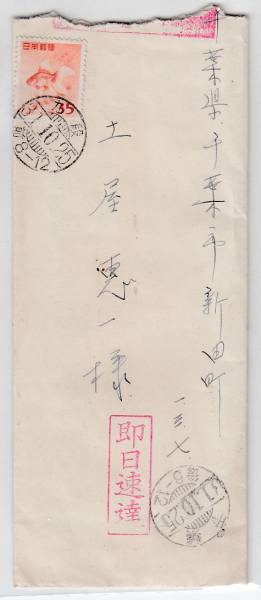 葉県千葉市新田町
一三七
土屋惠一様
日本郵便
35
31.10.25
后8-12
即日速達
31.10.25
后8-12